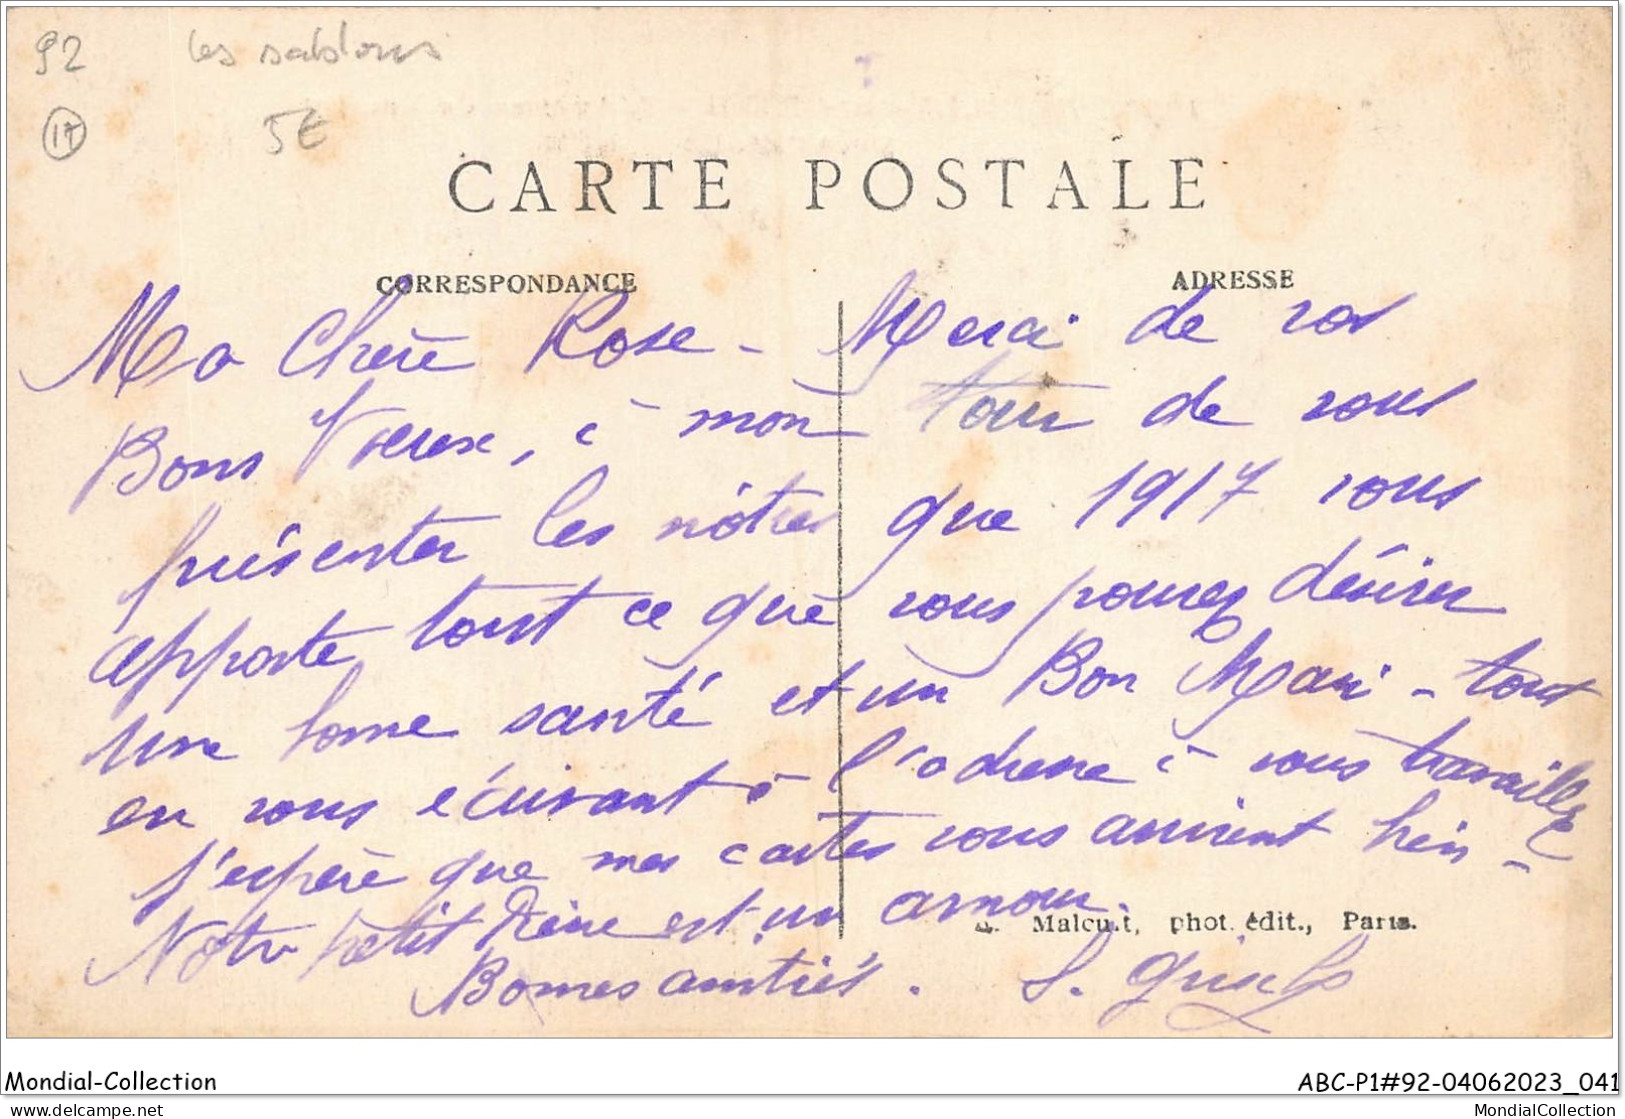 92 les sablons
17 5€
CARTE POSTALE
CORRESPONDANCE ADRESSE
Ma Chère Rose - Merci de vos
Bons Vœux, à mon tour de vous
présenter les nôtres que 1917 vous
apporte tout ce que vous pouvez désirer
une bonne santé et un Bon Mari - tout
en vous écrivant à l'adresse à vous travaille
j'espère que mes cartes vous arrivent hein -
Notre petit est un amour.
Malcuit, phot. édit., Paris.
Bonnes amitiés. S.
Mondial-Collection ABC-P1#92-04062023_041
www.delcampe.net MondialCollection